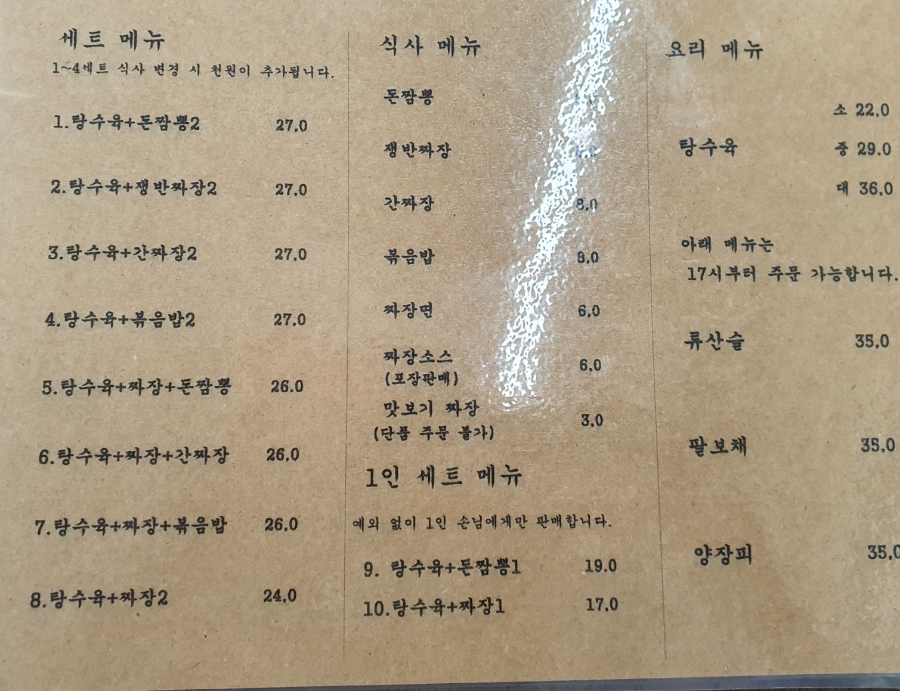 세트 메뉴
1~4세트 식사 변경 시 천원이 추가됩니다.
1.탕수육+돈짬뽕2 27.0
2.탕수육+쟁반짜장2 27.0
3.탕수육+간짜장2 27.0
4.탕수육+볶음밥2 27.0
5.탕수육+짜장+돈짬뽕 26.0
6.탕수육+짜장+간짜장 26.0
7.탕수육+짜장+볶음밥 26.0
8.탕수육+짜장2 24.0
식사 메뉴
돈짬뽕
쟁반짜장
간짜장 8.0
볶음밥 8.0
짜장면 6.0
짜장소스 6.0
(포장판매)
맛보기 짜장 3.0
(단품 주문 불가)
1인 세트 메뉴
예외 없이 1인 손님에게만 판매합니다.
9. 탕수육+돈짬뽕1 19.0
10.탕수육+짜장1 17.0
요리 메뉴
소 22.0
탕수육 중 29.0
대 36.0
아래 메뉴는
17시부터 주문 가능합니다.
류산슬 35.0
팔보채 35.0
양장피 35.0